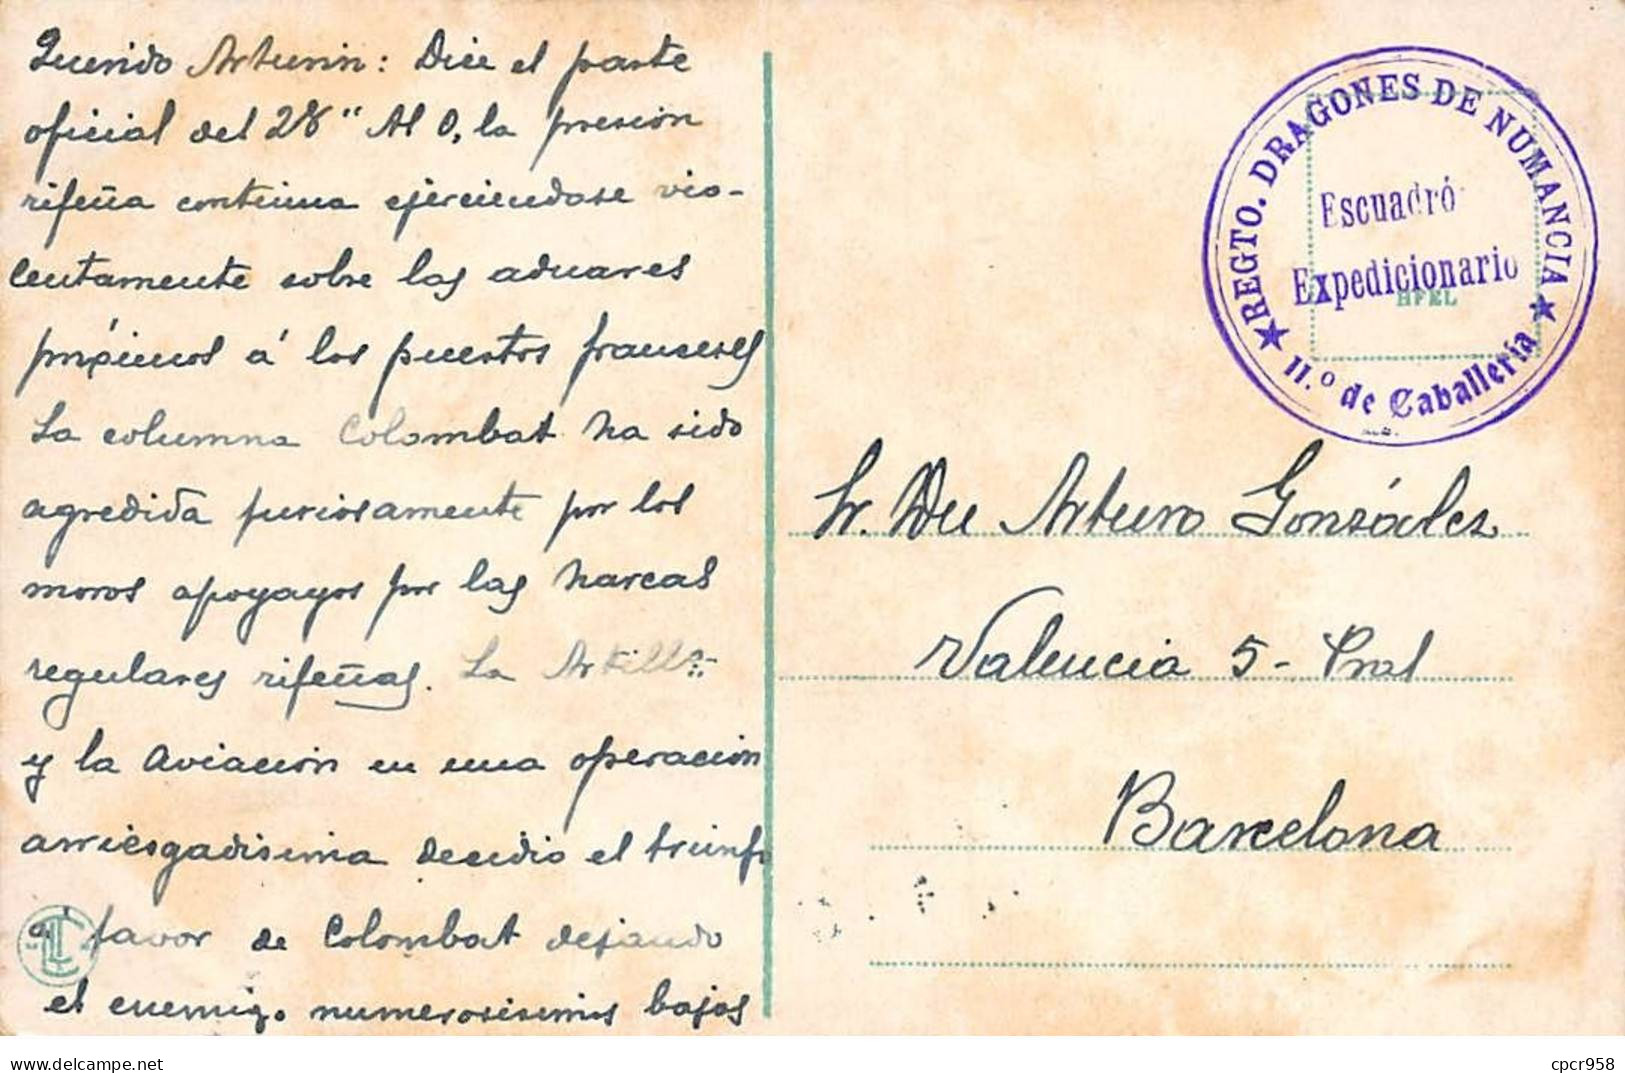 Querido Arturin: Dice el parte
oficial del 28 " Al O, la presión
rifeña continua ejerciendose vio-
lentamente sobre los aduares
próximos á los puestos franceses
La columna Colombat ha sido
agredida furiosamente por los
moros apoyagos por las harcas
regulares rifeñas. La Artillª
y la aviación en una operación
arriesgadisima decidio el triunfo
a favor de Colombat dejando
el enemigo numerosisimis bajas
REGTO. DRAGONES DE NUMANCIA
Escuadró
Expedicionario
11.º de Caballería
HFEL
Sr. Arturo González
Valencia 5 - Pral
Barcelona
delcampe.net
cpcr958